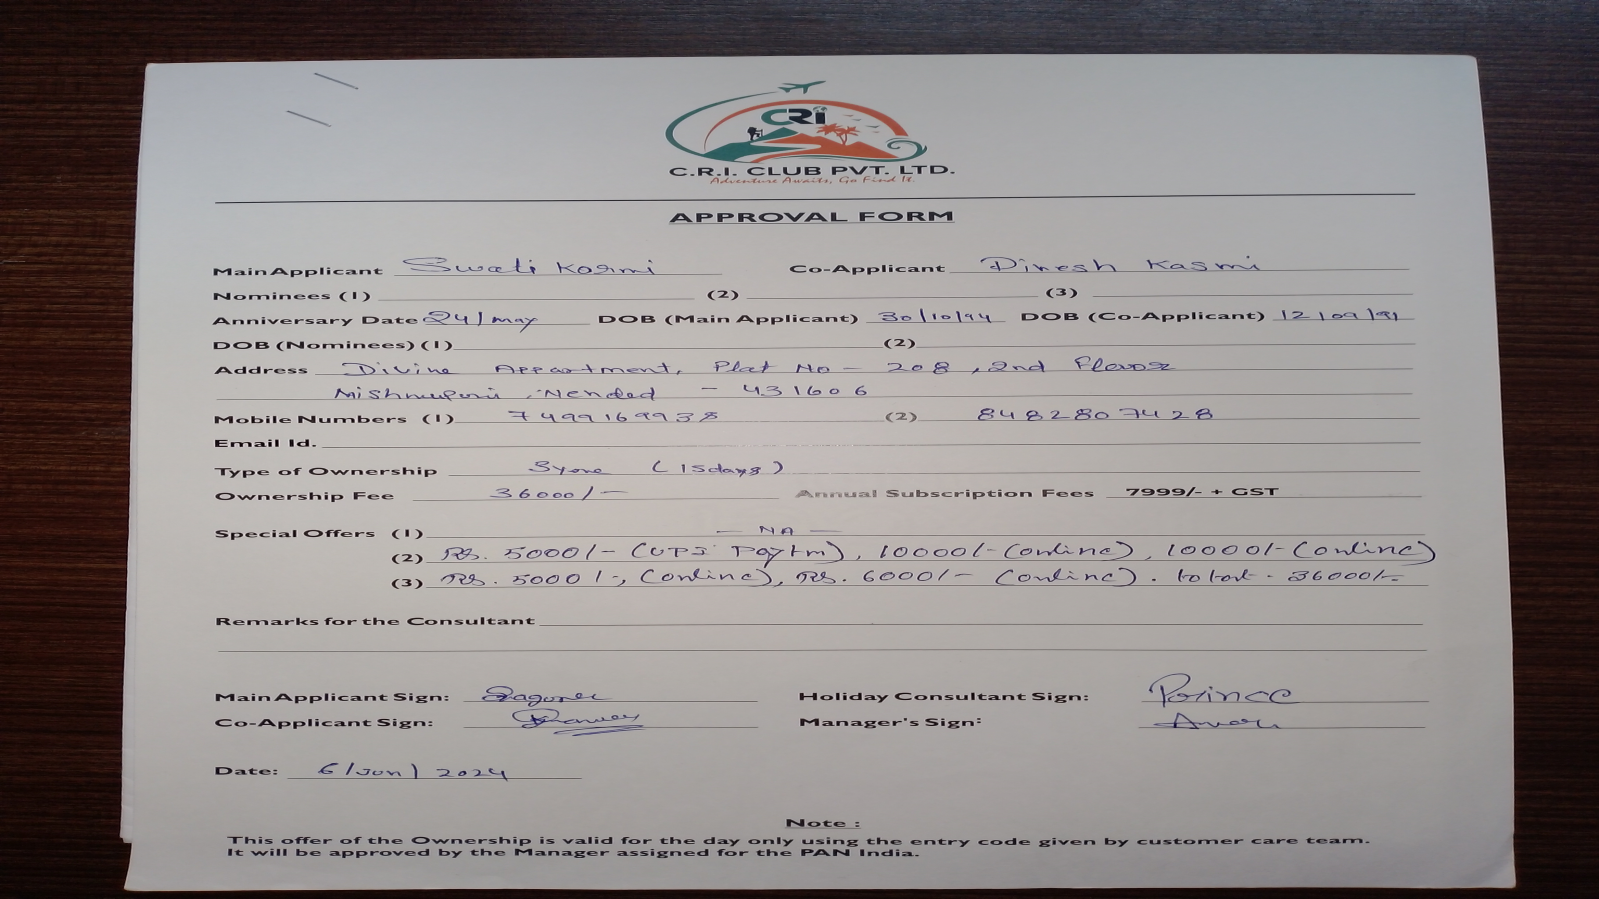 CRI
C.R.I. CLUB PVT. LTD.
Adventure Awaits, Go Find It.
APPROVAL FORM
Main Applicant Swati Karmi Co-Applicant Dinesh Kasmi
Nominees (1) (2) (3)
Anniversary Date 24/may DOB (Main Applicant) 30/10/94 DOB (Co-Applicant) 12/09/91
DOB (Nominees) (1) (2)
Address Divine Appartment, Plat No - 208, 2nd
Nended - 431606
Mobile Numbers (1) 7499169938 (2) 8482807428
Email Id.
Type of Ownership (15days)
Ownership Fee 36000/- Annual Subscription Fees 7999/- + GST
Special Offers (1) - NA -
(2) Rs. 5000/- (UPI Paytm), 10000/- (online), 10000/- (online)
(3) Rs. 5000/-, (online), Rs. 6000/- (online). total - 36000/-
Remarks for the Consultant
Main Applicant Sign: Holiday Consultant Sign: Prince
Co-Applicant Sign: Manager's Sign:
Date: 6/Jun/2024
Note :
This offer of the Ownership is valid for the day only using the entry code given by customer care team.
It will be approved by the Manager assigned for the PAN India.